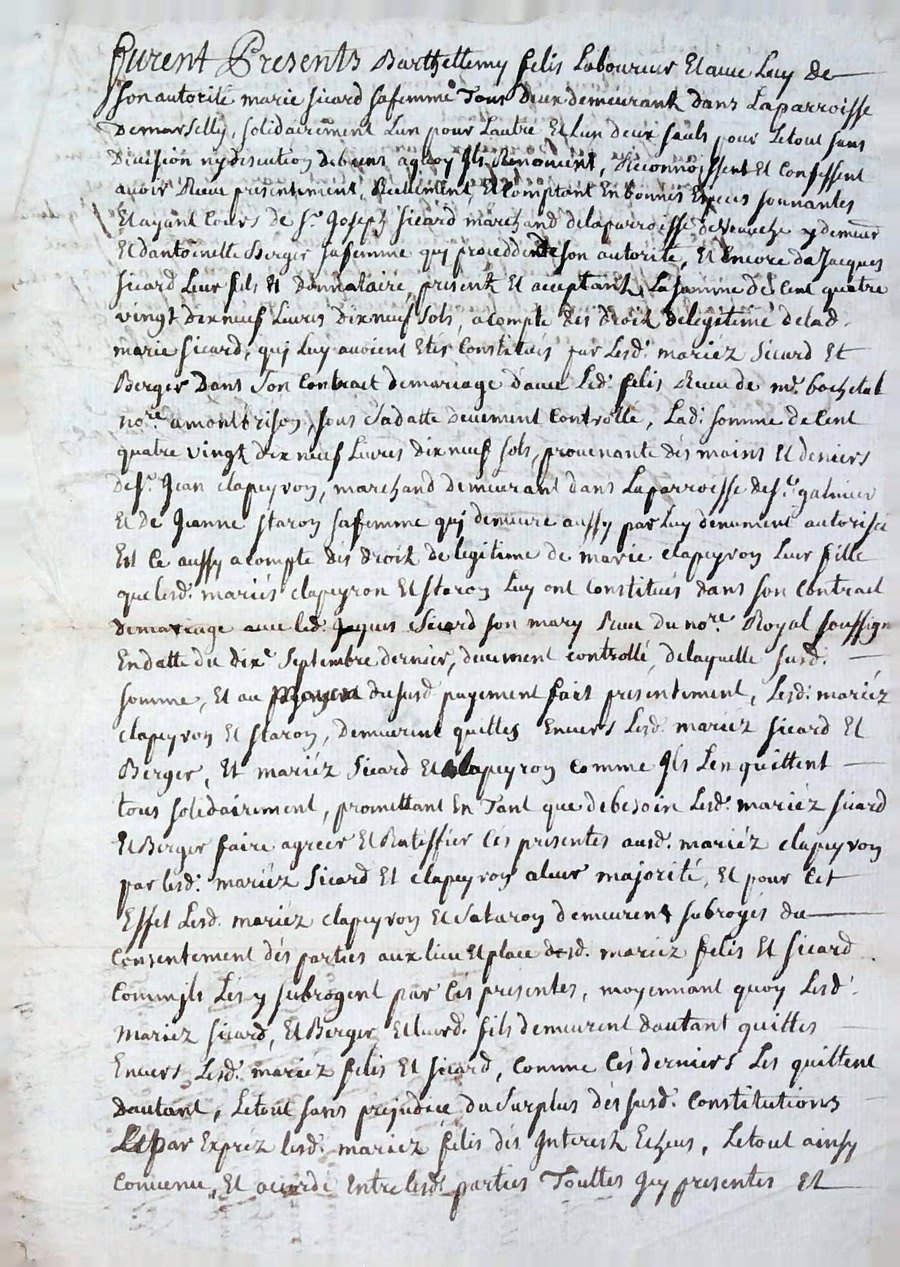 furent Presents Barthellemy felis Laboureur Et avec Luy de
son autorité marie sicard sa femme Tous deux demeurant dans La parroisse
De marselly, solidairement L'un pour Lautre Et Lun deux seuls pour Le tout sans
Division ny discution de biens a quoy Ils Renoncent, Reconnoissent Et Confessent
avoir Reçeu presentement, Reellement, Et Comptant En bonnes Especes sonnantes
Et ayant Cours de Sr Joseph sicard marchand de la parroisse de y demeur
Et d'antoinette Berger sa femme qui proceddent de son autorité, Et Encore de Jacques
sicard Leur fils Et donnataire present Et acceptant La somme de Cent quatre
vingt dix neuf Livres dix neuf sols, a compte des droit de legitime de lad.
marie sicard, qui Luy avoient Etes Constitués par Lesd. mariéz sicard Et
Berger Dans son Contract de mariage d'avec Led. felis Reçeu de me bochetal
nore a montbrison, sous sa datte deuement Controllé, Lad. somme de Cent
quatre vingt dix neuf Livres dix neuf sols, provenante des mains Et deniers
de sr Jean clapeyron, marchand demeurant dans La parroisse de st galmier
Et de Jeanne staron sa femme qui demeure aussy par Luy deuement autorisée
Est Ce aussy a compte des droit de legitime de marie clapeyron Leur fille
que lesd. mariés clapeyron Et staron Luy ont Constitués dans son Contract
de mariage avec led. Jaques sicard son mary Reçeu du nore Royal soussigné
En datte du dixe septembre dernier, deuement controllé, de laquelle susd.
somme, Et au Moyen du susd. payement fait presentement, Lesd. mariéz
clapeyron Et staron, demeurent quittes Envers Lesd. mariéz sicard Et
Berger, Et mariéz sicard Et clapeyron Comme Ils L'en quittent
tous solidairement, promettant En Tant que de besoin Lesd. mariéz sicard
Et Berger faire agreer Et Ratiffier Ces presentes ausd. mariéz clapeyron
par lesd. mariéz sicard Et clapeyron a leur majorité, Et pour Cet
Effet Lesd. mariez clapeyron Et Staron demeurent subrogés du
Consentement des parties aux lieu Et place desd. mariéz felis Et sicard
Comm'ils Les y subrogent par Ces presentes, moyennant quoy Lesd.
mariéz sicard, Et Berger Et leurd. fils demeurent dautant quittes
Envers Lesd. mariéz felis Et sicard, Comme Ces derniers Les quittent
dautant, Le tout sans prejudice du surplus des susd. Constitutions
Et par Expréz lesd. mariéz felis des Interest Echeus, Le tout ainsy
Convenu, Et accordé Entre lesd. parties Touttes Icy presentes Et